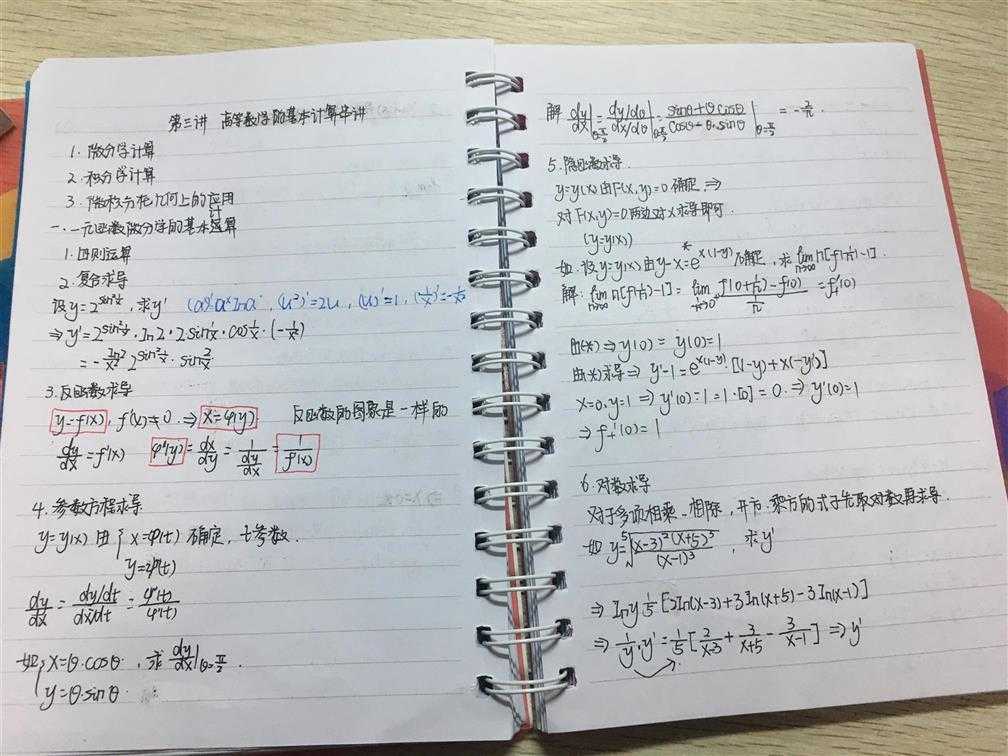 第三讲 高等数学的基本计算串讲
1. 微分学计算
2. 积分学计算
3. 微积分在几何上的应用
一. 一元函数微分学的基本计算
1. 四则运算
2. 复合求导
设y=2^{sin²1/x}, 求y' (a^x)'=a^x lna, (u²)'=2u, (u)'=1, (1/x)'=-1/x²
⇒y'=2^{sin²1/x}·ln2·2sin1/x·cos1/x·(-1/x²)
=-ln2/x² 2^{sin²1/x}·sin2/x
3. 反函数求导
y=f(x), f'(x)≠0. ⇒ x=φ(y) 反函数的图象是一样的
dy/dx=f'(x) φ'(y)=dx/dy=1/(dy/dx)=1/f'(x)
4. 参数方程求导
y=y(x) 由{x=φ(t) 确定, t参数.
y=ψ(t)
dy/dx=(dy/dt)/(dx/dt)=ψ'(t)/φ'(t)
如{x=θ·cosθ, 求dy/dx|θ=π/2
y=θ·sinθ
解 dy/dx|θ=π/2=(dy/dθ)/(dx/dθ)|θ=π/2=(sinθ+θcosθ)/(cosθ-θ·sinθ)|θ=π/2=-2/π.
5. 隐函数求导.
y=y(x)由F(x,y)=0 确定, ⇒
对F(x,y)=0两边对x求导即可.
(y=y(x))
如. 设y=y(x)由y-x=*e^{x(1-y)}确定, 求lim n→∞ n[f(1/n)-1]
解: lim n→∞ n[f(1/n)-1]=lim 1/n→0⁺ (f(0+1/n)-f(0))/(1/n)=f'₊(0)
由(*)⇒y(0)= y(0)=1
由(*)求导⇒y'-1=e^{x(1-y)}·[(1-y)+x(-y')]
x=0, y=1⇒y'(0)-1=1·[0]=0.⇒y'(0)=1
⇒f₊'(0)=1
6. 对数求导
对于多项相乘、相除, 开方, 乘方的式子先取对数再求导.
如 y=⁵√((x-3)²(x+5)³/(x-1)³), 求y'
⇒lny 1/5[2ln(x-3)+3ln(x+5)-3ln(x-1)]
⇒1/y·y'=1/5[2/(x-3)+3/(x+5)-3/(x-1)]⇒y'